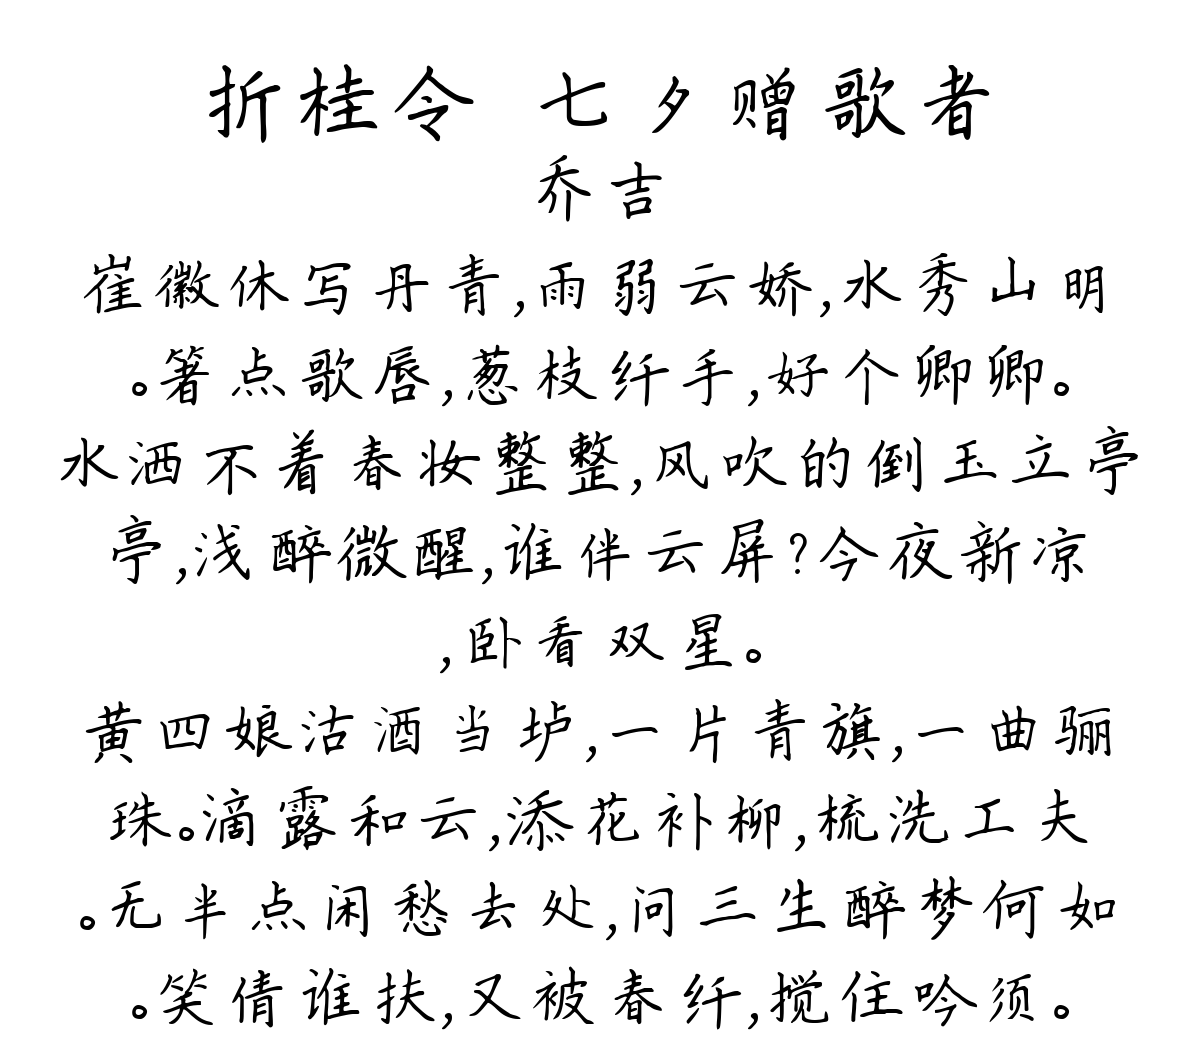 折桂令 七夕赠歌者
乔吉
崔徽休写丹青,雨弱云娇,水秀山明
。箸点歌唇,葱枝纤手,好个卿卿。
水洒不着春妆整整,风吹的倒玉立亭
亭,浅醉微醒,谁伴云屏?今夜新凉
,卧看双星。
黄四娘沽酒当垆,一片青旗,一曲骊
珠。滴露和云,添花补柳,梳洗工夫
。无半点闲愁去处,问三生醉梦何如
。笑倩谁扶,又被春纤,搅住吟须。